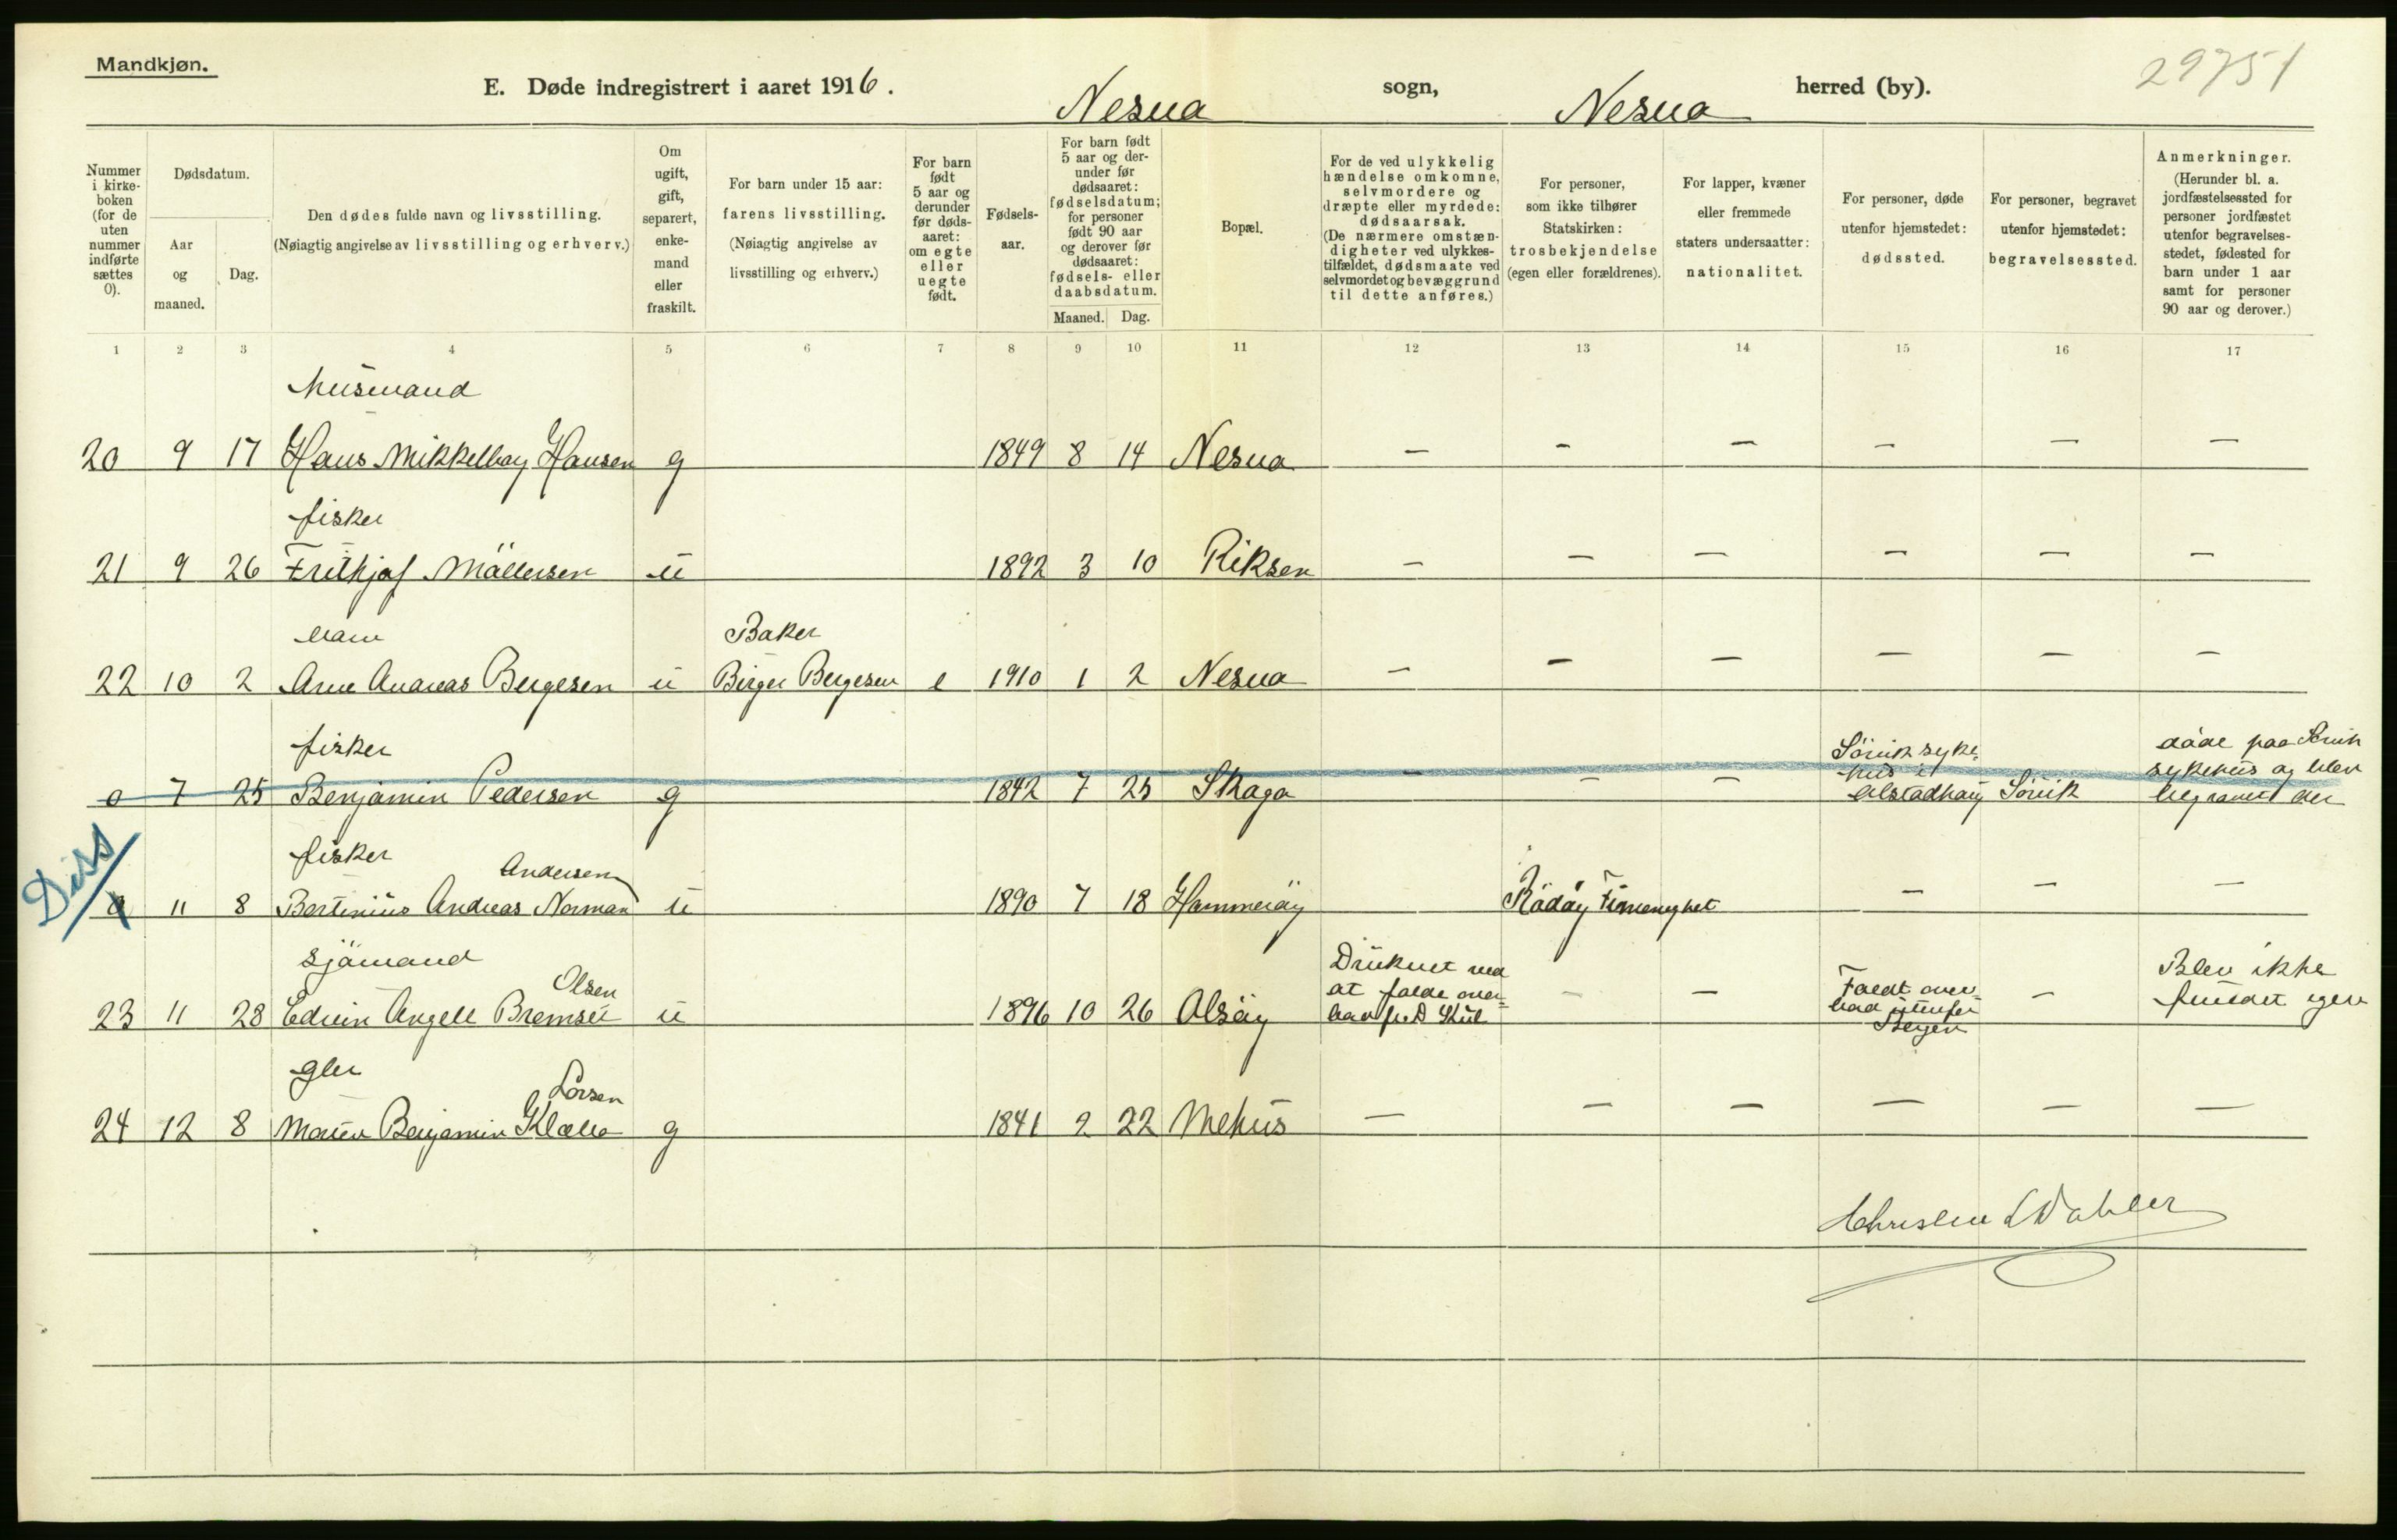 Mandkjøn.
E. Døde indregistrert i aaret 1916. Nesna sogn, Nesna herred (by).
29751
Nummer i kirke-boken (for de uten nummer indførte sættes 0).
Dødsdatum.
Aar og maaned.
Dag.
Den dødes fulde navn og livsstilling.
(Nøiagtig angivelse av livsstilling og erhverv.)
Om ugift, gift, separert, enke-mand eller fraskilt.
For barn under 15 aar:
farens livsstilling.
(Nøiagtig angivelse av
livsstilling og erhverv.)
For barn født 5 aar og derunder før døds-aaret: om egte eller uegte født.
Fødsels-aar.
For barn født 5 aar og der-under før dødsaaret: fødselsdatum; for personer født 90 aar og derover før dødsaaret: fødsels- eller daabsdatum.
Maaned. Dag.
Bopæl.
For de ved ulykkelig hændelse omkomne, selvmordere og dræpte eller myrdede: dødsaarsak. (De nærmere omstæn-digheter ved ulykkes-tilfældet, dødsmaate ved selvmordet og bevæggrund til dette anføres.)
For personer, som ikke tilhører Statskirken: trosbekjendelse (egen eller forældrenes).
For lapper, kvæner eller fremmede staters undersaatter: nationalitet.
For personer, døde utenfor hjemstedet: dødssted.
For personer, begravet utenfor hjemstedet: begravelsessted.
Anmerkninger. (Herunder bl. a. jordfæstelsessted for personer jordfæstet utenfor begravelses-stedet, fødested for barn under 1 aar samt for personer 90 aar og derover.)
1 2 3 4 5 6 7 8 9 10 11 12 13 14 15 16 17
Husmand
20 9 17 Hans Mikkelhay Hansen g 1849 8 14 Nesna — — — — — —
fisker
21 9 26 Frithjof Möllersen u 1892 3 10 Riksen — — — — — —
barn Baker
22 10 2 Arne Andreas Bergesen u Birger Bergesen e 1910 1 2 Nesna — — — — — —
fisker
0 7 25 Benjamin Pedersen g 1842 7 25 Skaga — — — Sövik syke-
hus i
Alstadhaug Sövik
döde paa Sövik
sykehus og blev
begravet der
Diss
fisker
Andersen
0 11 8 Bertinius Andreas Norman u 1890 7 18 Hammeröy Rödöy — — —
sjömand
Olsen
23 11 28 Edvin Angell Bremseu u 1896 10 26 Alsöy
Druknet ved
at falde over-
— — Faldt over-
bord utenfor
Bergen
— Blev ikke
fundet igen
gbr
Larsen
24 12 8 Morten Benjamin g 1841 2 22 Mehus — — — — — —